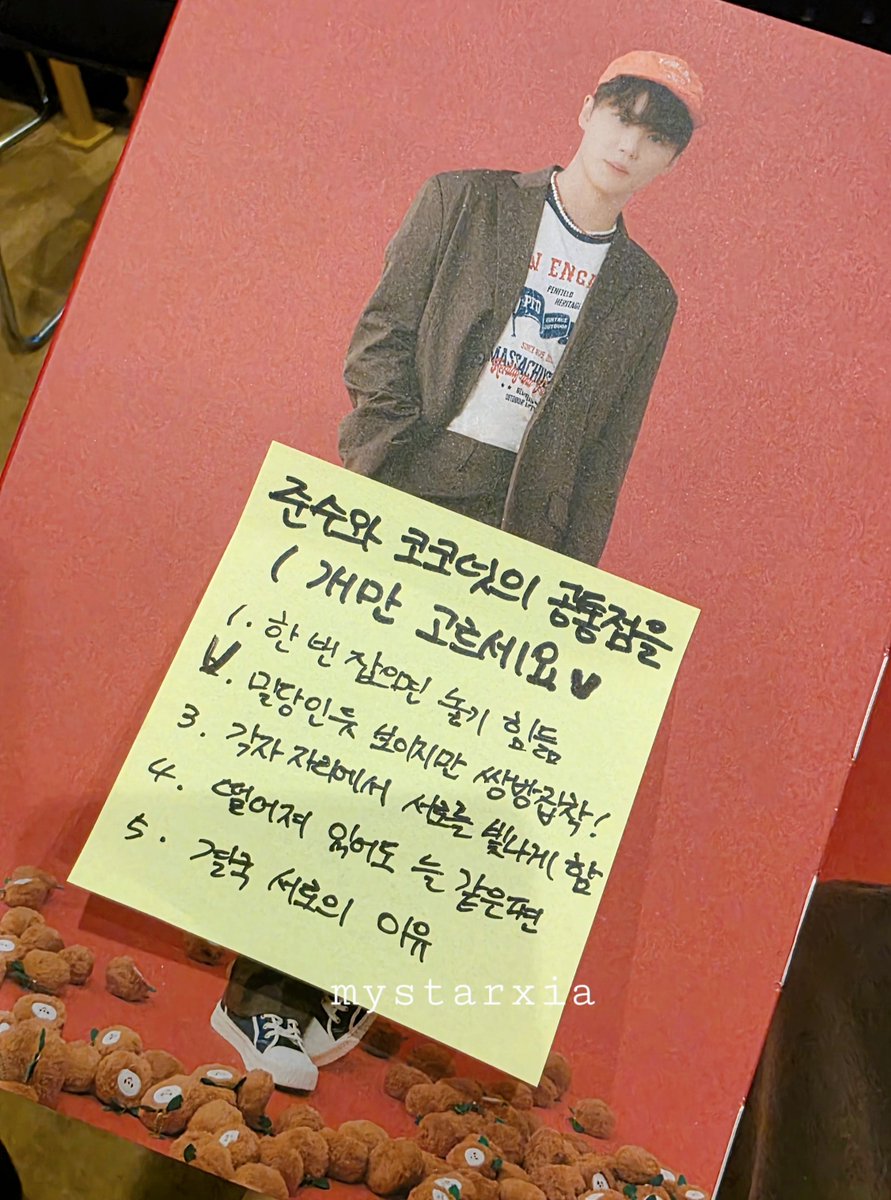 N ENGL
PENFIELD
HERITAGE
MASSACHUS
준수와 코코넛의 공통점을
1 개만 고르세요
1. 한 번 잡으면 놓기 힘듦
2. 밀당인듯 보이지만 쌍방집착!
3. 각자 자리에서 서로를 빛나게 함
4. 떨어져 있어도 늘 같은편
5. 결국 서로의 이유
mystarxia